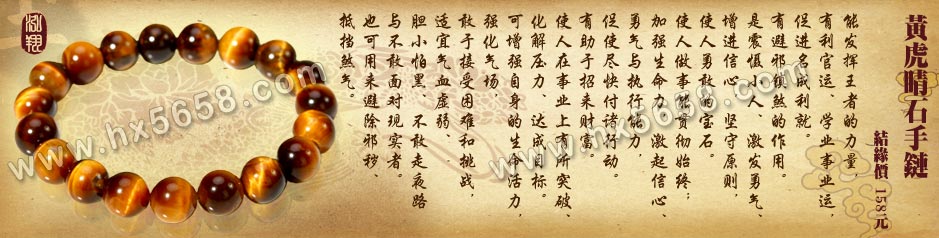 黃虎晴石手鏈
結緣價 158元
能发挥王者的力量
有利官运、学业事业运，
促进名成利就。
有避邪镇煞的作用。
是震慑小人、激发勇气、
增进信心、坚守原则，
使人勇敢的宝石。
使人做事能贯彻始终，
加强生命力，激起信心，
勇气与执行能力，
促使尽快付诸行动。
有助于招来财富。
使人在事业上有所突破、
化解压力、达成目标。
可增强自身的生命活力，
强化气场。
敢于接受困难和挑战，
适宜气血虚弱、
胆小怕黑、不敢走夜路
与不敢面对现实者。
也可用来避除邪秽，
抵挡煞气。
泓翔
www.hx5658.com
www.hx5658.com
www.hx5658.com